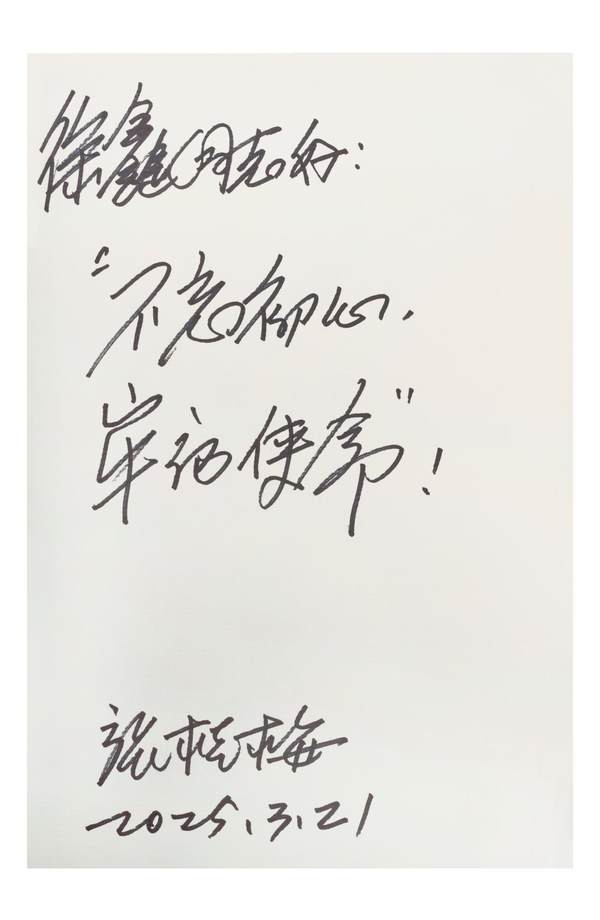 徐鑫同志好：
“不忘初心，
牢记使命”！
张桂梅
2025.3.21